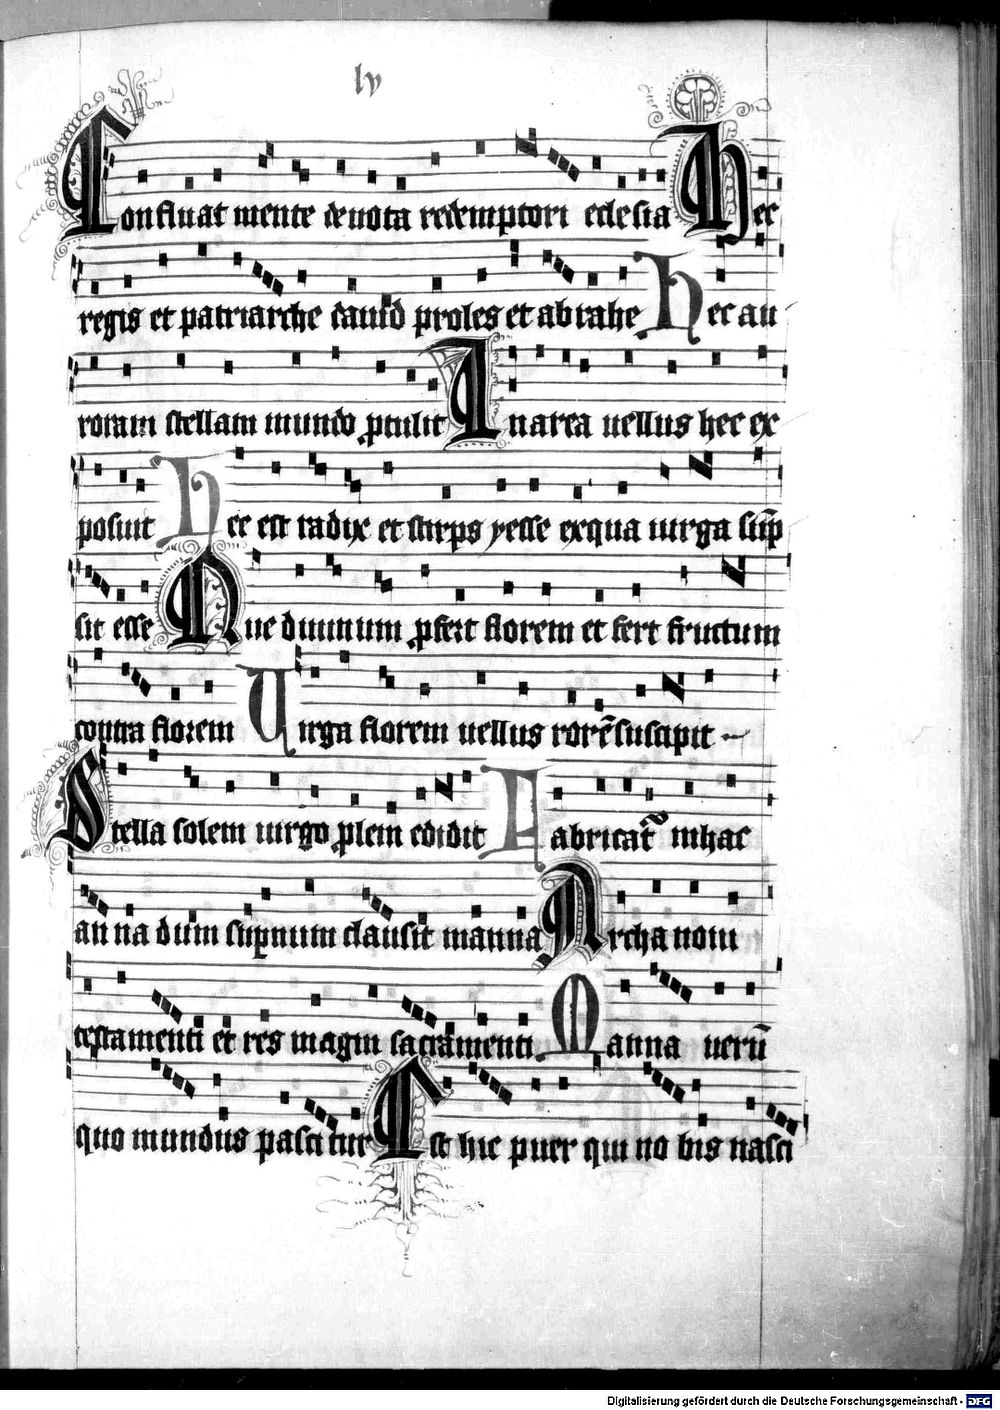 lv
Confluat mente deuota redemptori eclesia Hec
regis et patriarche dauid proles et abrahe Hec au
roram stellam mundo ꝓtulit In area uellus hec ex
posuit Hec est radix et stirps yesse exqua uirga sūp
sit esse Que diuinum ꝓfert florem et fert fructum
contra florem Uirga florem uellus rorē suscipit
Stella solem uirgo plem edidit Fabricat᷑ inhac
an na dum supnum clausit manna Archa noui
testamenti et res magni sacramenti Manna uerū
quo mundus pasci tur Est hic puer qui no bis nasci
Digitalisierung gefördert durch die Deutsche Forschungsgemeinschaft - DFG